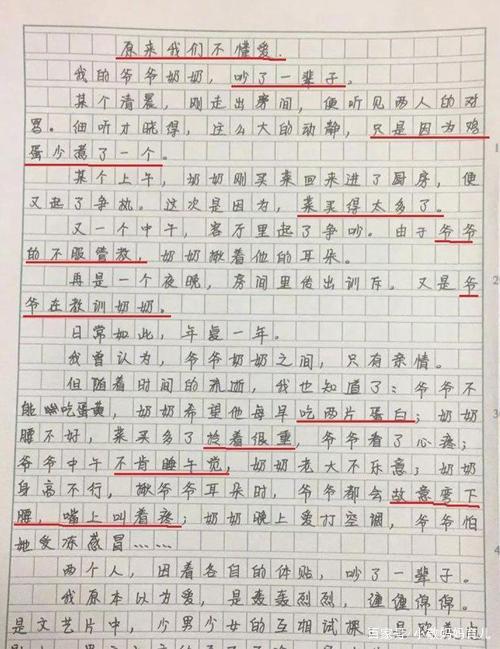 原来我们不懂爱.
我的爷爷奶奶，吵了一辈子。
某个清晨，刚走出房间，便听见两人的对
骂。细听才晓得，这么大的动静，只是因为鸡
蛋少煮了一个。
某个上午，奶奶刚买菜回来进了厨房，便
又起了争执。这次是因为，菜买得太多了。
又一个中午，客厅里起了争吵。由于爷爷
的不服管教，奶奶揪着他的耳朵。
再是一个夜晚，房间里传出训斥。又是爷
爷在教训奶奶。
日常如此，年复一年。
我曾认为，爷爷奶奶之间，只有亲情。
但随着时间的流逝，我也知道了：爷爷不
能吃蛋黄，奶奶希望他每早吃两片蛋白；奶奶
腰不好，菜买多了拎着很重，爷爷看了心疼；
爷爷中午不肯睡午觉，奶奶老大不乐意；奶奶
身高不行，揪爷爷耳朵时，爷爷都会故意弯下
腰，嘴上叫着疼；奶奶晚上爱打空调，爷爷怕
她受冻感冒……
两个人，因着各自的体贴，吵了一辈子。
我原本以为爱，是轰轰烈烈，缠缠绵绵。
是文艺片中，少男少女的互相试探
1
2
3
4